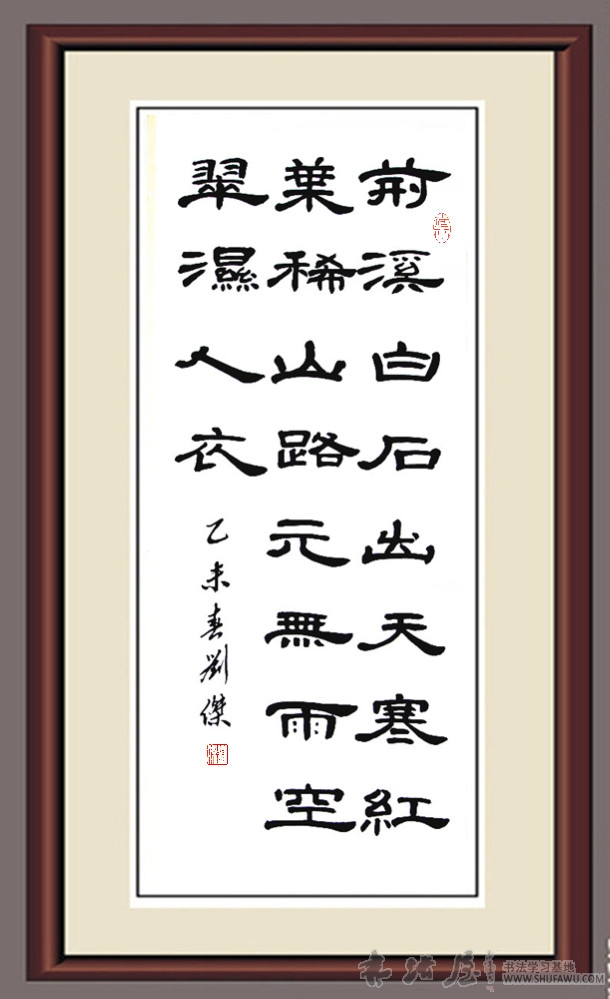 荊溪白石出天寒紅
葉稀山路元無雨空
翠濕人衣
乙未春劉傑
书法学习基地
WWW.SHUFAWU.COM